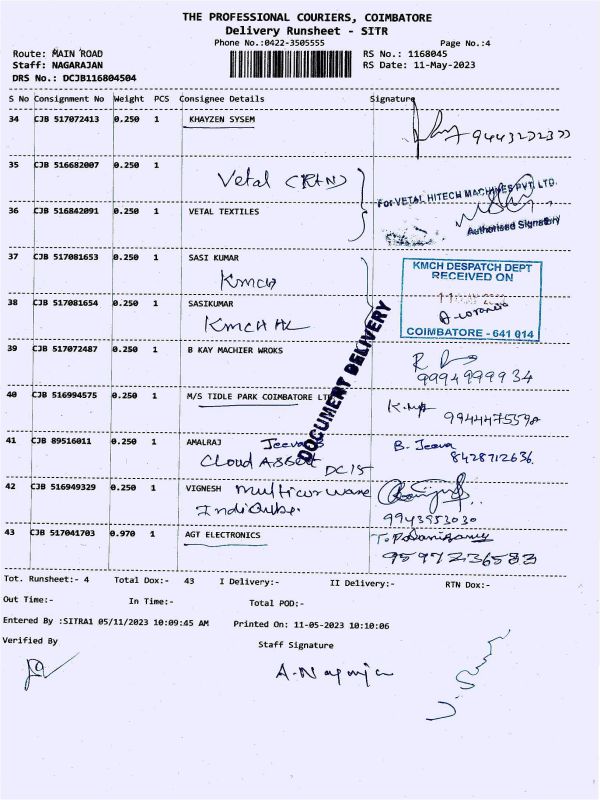 THE PROFESSIONAL COURIERS, COIMBATORE
Delivery Runsheet - SITR
Phone No.:0422-3505555 Page No.:4
Route: MAIN ROAD RS No.: 1168045
Staff: NAGARAJAN RS Date: 11-May-2023
DRS No.: DCJB116804504
S No Consignment No Weight PCS Consignee Details Signature
34 CJB 517072413 0.250 1 KHAYZEN SYSEM
35 CJB 516682007 0.250 1
Vetal
For VETAL HITECH MACHINES PVT. LTD.
36 CJB 516842091 0.250 1 VETAL TEXTILES
Authorised Signatory
37 CJB 517081653 0.250 1 SASI KUMAR
KMCH
KMCH DESPATCH DEPT
RECEIVED ON
38 CJB 517081654 0.250 1 SASIKUMAR
KMCH
COIMBATORE - 641 014
DOCUMENT DELIVERY
39 CJB 517072487 0.250 1 B KAY MACHIER WROKS
9994999934
40 CJB 516994575 0.250 1 M/S TIDLE PARK COIMBATORE LT
41 CJB 89516011 0.250 1 AMALRAJ Jeeva
Cloud Assert DC15
B. Jeeva
8428712636.
42 CJB 516949329 0.250 1 VIGNESH multicorware
IndiQube.
9943953030
43 CJB 517041703 0.970 1 AGT ELECTRONICS
9597236583
Tot. Runsheet:- 4 Total Dox:- 43 I Delivery:- II Delivery:- RTN Dox:-
Out Time:- In Time:- Total POD:-
Entered By :SITRA1 05/11/2023 10:09:45 AM Printed On: 11-05-2023 10:10:06
Verified By Staff Signature